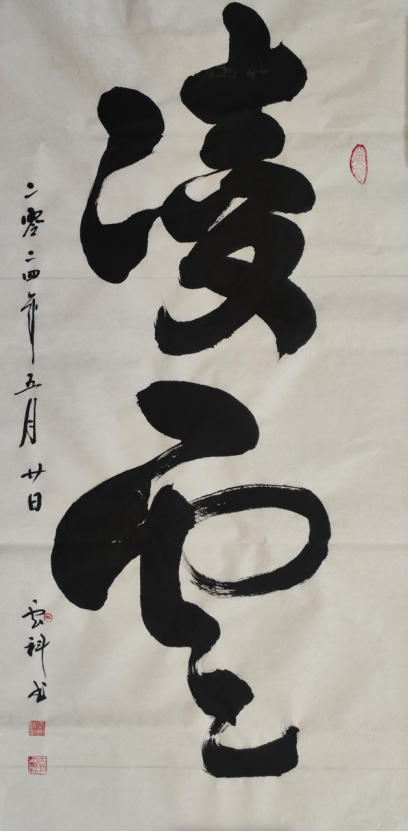 凌雲
二零二四年五月廿日
雲科书